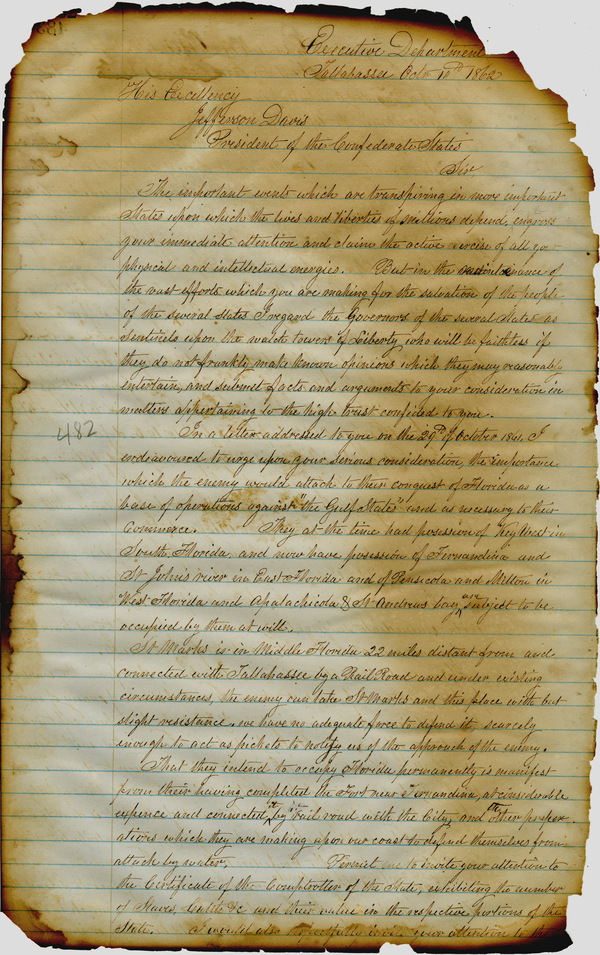 Executive Department
Tallahassee Octr 10th 1862
His Excellency
Jefferson Davis
President of the Confederate States
Sir
The important events which are transpiring in more important
States upon which the lives and liberties of millions depend, engross
your immediate attention and claim the active exercise of all yo
physical and intellectual energies. But in the maintenance of
the vast efforts which you are making for the salvation of the people
of the several states I regard the Governors of the several States as
sentinels upon the watch towers of Liberty who will be faithless if
they do not frankly make known opinions which they may reasonabl
entertain, and submit facts and arguments to your consideration in
matters appertaining to the high trust confided to you.
482
In a letter addressed to you on the 29th of October 1861. I
endeavoured to urge upon your serious consideration, the importance
which the enemy would attach to their conquest of Florida as a
base of operations against "the Gulf States" and as necessary to their
Commerce. They at the time had possession of Key West in
South Florida, and now have possession of Fernandina and
St John's river in East Florida and of Pensicola and Milton in
West Florida and Apalachicola & St Andrews bay are subject to be
occupied by them at will.
St Marks is in Middle Florida 22 miles distant from and
connected with Tallahassee by a Rail Road and under existing
circumstances, the enemy can take St Marks and this place with but
slight resistance. we have no adequate force to defend it, scarcely
enough to act as pickets to notify us of the approach of the enemy.
That they intend to occupy Florida permanently is manifest
from their having completed the Fort near Fernandina, at considerable
expence and connected it by rail road with the City, and the other prepar-
ations which they are making upon our coast to defend themselves from
attack by water. Permit me to invite your attention to
the Certificate of the Comptroller of the State, exhibiting the number
of Slaves, Cattle &c and their value in the respective portions of the
State. I would also respectfully invite your attention to the